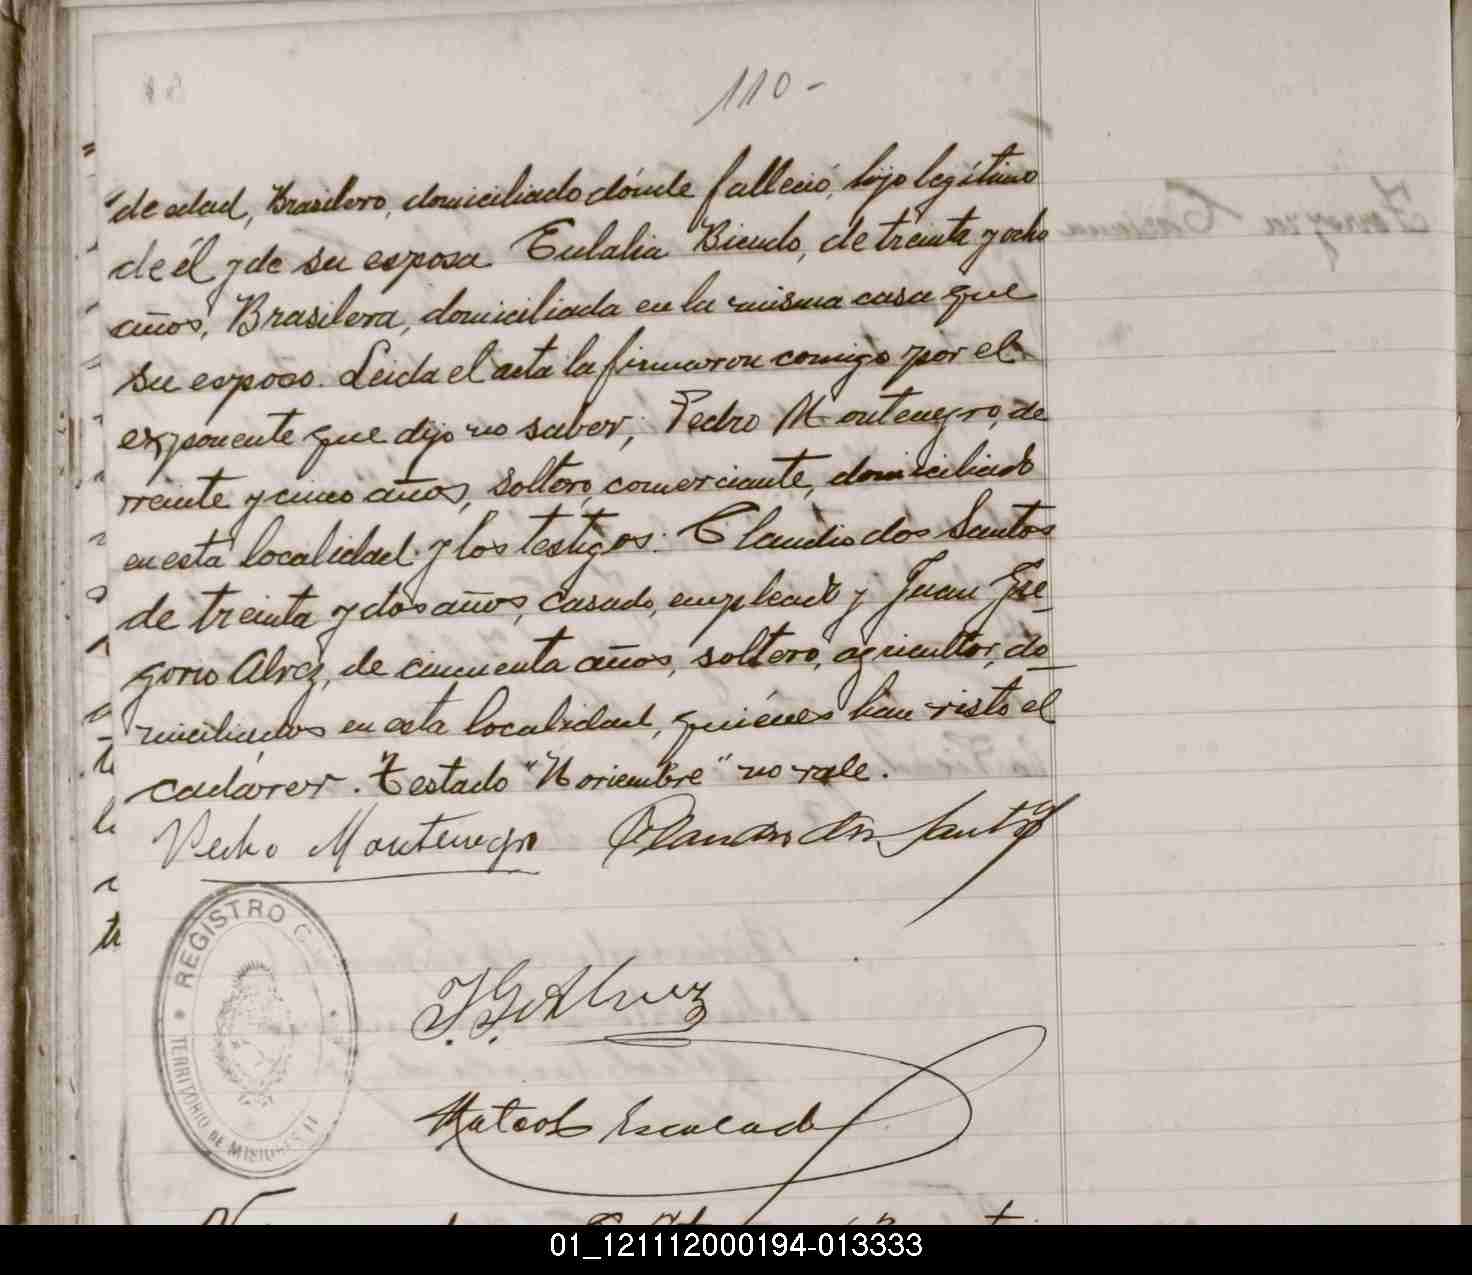 110-
de edad, Brasilero, domiciliado dónde falleció, hijo legítimo
de él y de su esposa Eulalia Bicudo, de treinta y ocho
años, Brasilera, domiciliada en la misma casa que
su esposo. Leida el acta la firmaron comigo y por el
exponente que dijo no saber, Pedro Montenegro, de
treinta y cinco años, soltero, comerciante, domiciliado
en esta localidad y los testigos: Claudio dos Santos
de treinta y dos años, casado, empleado y Juan Gre-
gorio Alvez, de cincuenta años, soltero, agricultor, do-
miciliados en esta localidad, quiénes han visto el
cadáver. Testado "Noviembre" no vale.
Pedro Montenegro Claudio dos Santos
J. G. Alvez
REGISTRO
TERRITORIO DE MISIONES
Mateo Escalada
01_121112000194-013333